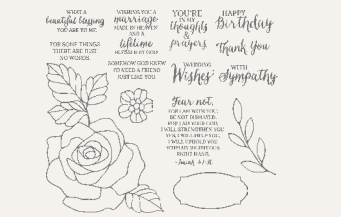 WHAT A
beautiful blessing
YOU ARE TO ME.
FOR SOME THINGS
THERE ARE JUST
NO WORDS.
WISHING YOU A
marriage
MADE IN HEAVEN
AND A
lifetime
BLESSED BY GOD
SOMEHOW GOD KNEW
I'D NEED A FRIEND
JUST LIKE YOU.
YOU'RE
IN MY
thoughts
&
prayers.
HAPPY
Birthday
Thank You
WEDDING
Wishes
WITH
Sympathy
Fear not,
FOR I AM WITH YOU;
BE NOT DISMAYED,
FOR I AM YOUR GOD.
I WILL STRENGTHEN YOU
YES, I WILL HELP YOU,
I WILL UPHOLD YOU
WITH MY RIGHTEOUS
RIGHT HAND.
-Isaiah 41:10